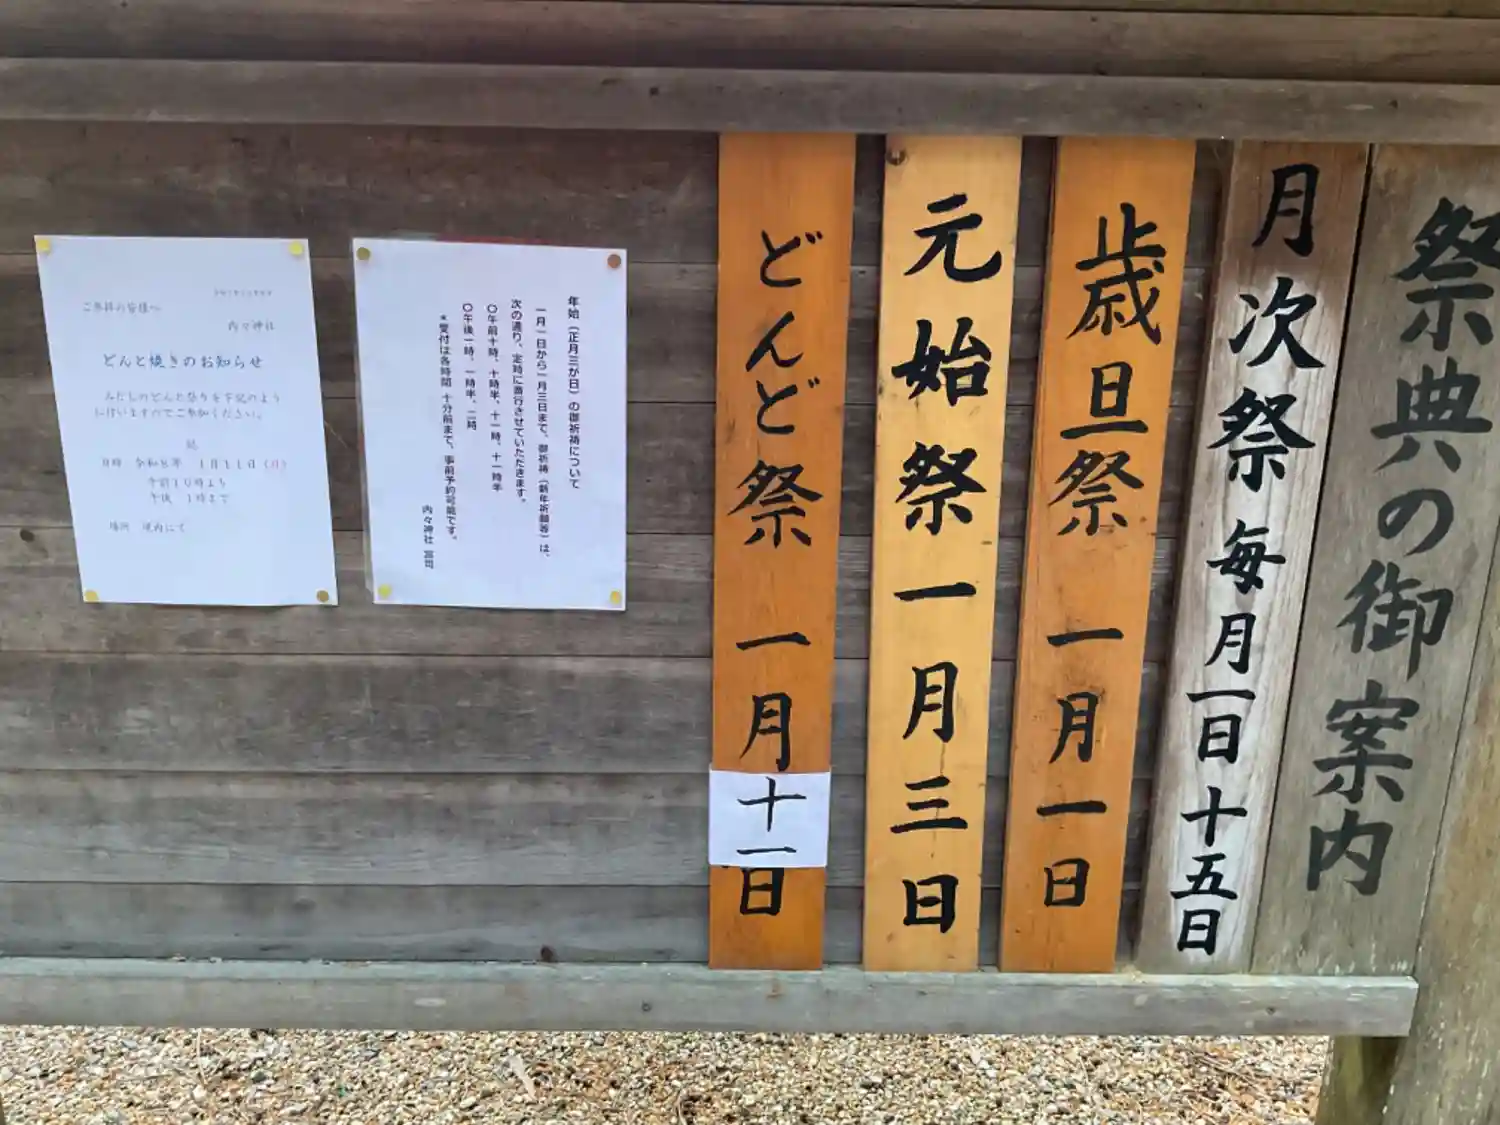 祭典の御案内
月次祭 毎月一日十五日
歳旦祭 一月一日
元始祭 一月三日
どんど祭 一月十一日
年始（正月三が日）の御祈祷について
一月一日から一月三日まで、御祈祷（新年祈願等）は、
次の通り、定時に斎行させていただきます。
〇午前十時、十時半、十一時、十一時半
〇午後一時、一時半、二時
＊受付は各時間 十分前まで、事前予約可能です。
内々神社 宮司
ご参拝の皆様へ
内々神社
どんと焼きのお知らせ
のどんと祭りを下記のよう
に行いますのでご参加ください。
記
日時 令和8年 1月11日（月）
午前10時より
午後 1時まで
場所 境内にて